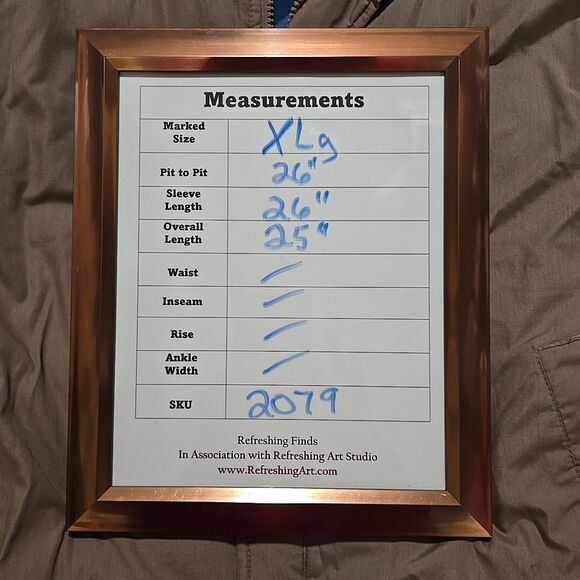 Measurements
Marked
Size
XLg
Pit to Pit
26"
Sleeve
Length
26"
Overall
Length
25"
Waist
—
Inseam
—
Rise
—
Ankle
Width
—
SKU
2079
Refreshing Finds
In Association with Refreshing Art Studio
www.RefreshingArt.com